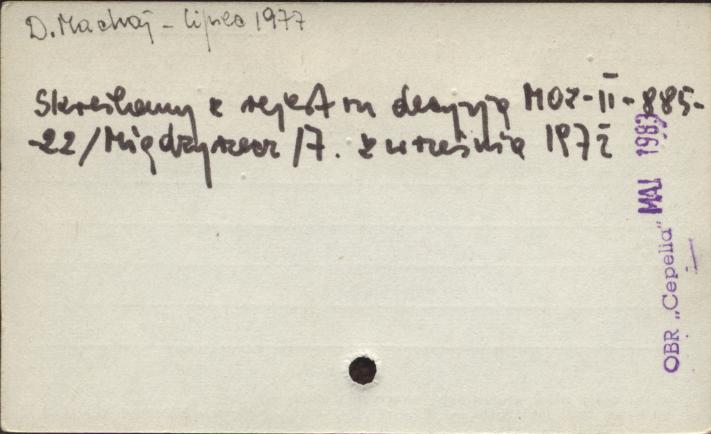 D. Machaj - lipiec 1977
Skreślony z rejestru decyzją MOZ-II-885-
-22/Międzyrzecz/7. z września 197
OBR „Cepelia" MAJ 1983